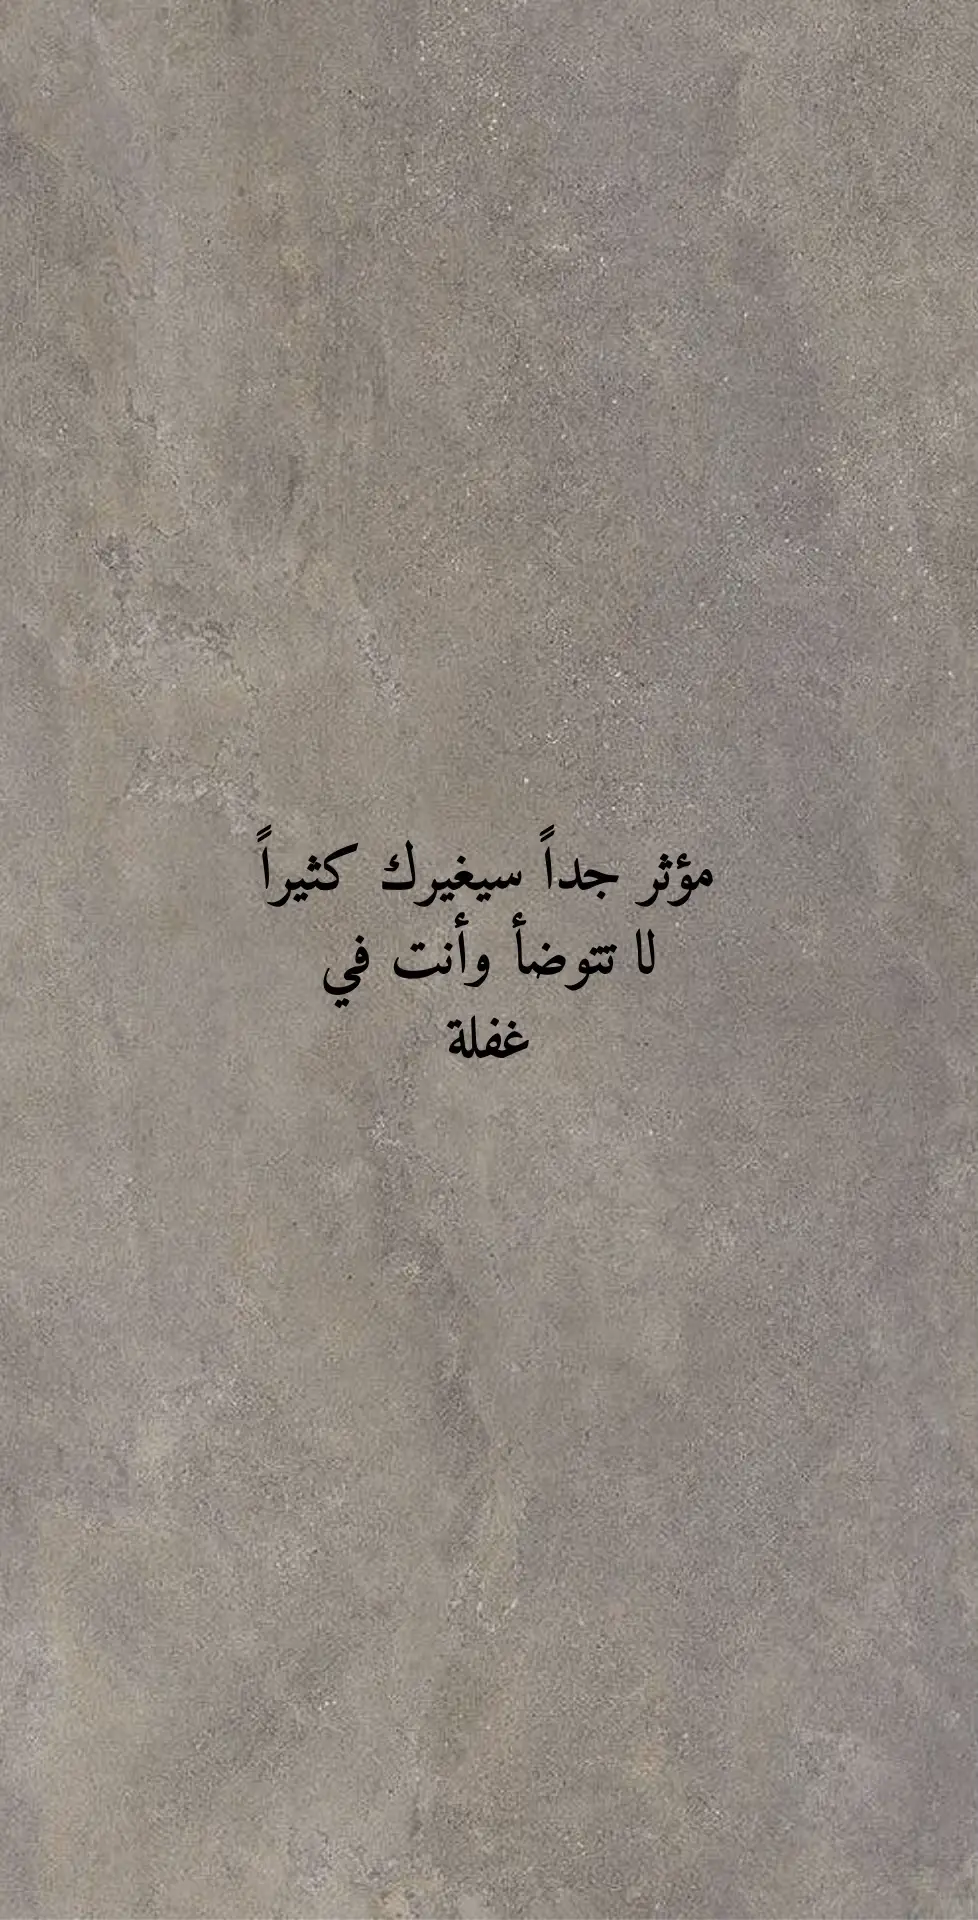 مؤثر جداً سيغيرك كثيراً
لا تتوضأ وأنت في
غفلة